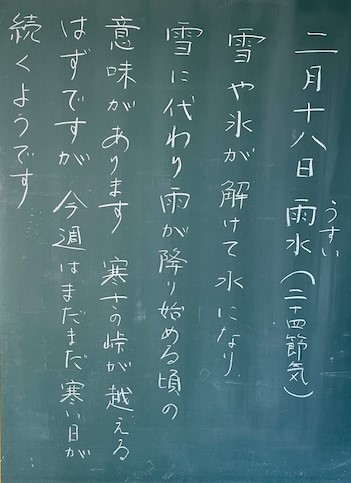 二月十八日 雨水(二十四節気)
うすい
雪や氷が解けて水になり
雪に代わり雨が降り始める頃の
意味があります 寒さの峠が越える
はずですが 今週はまだまだ寒い日が
続くようです